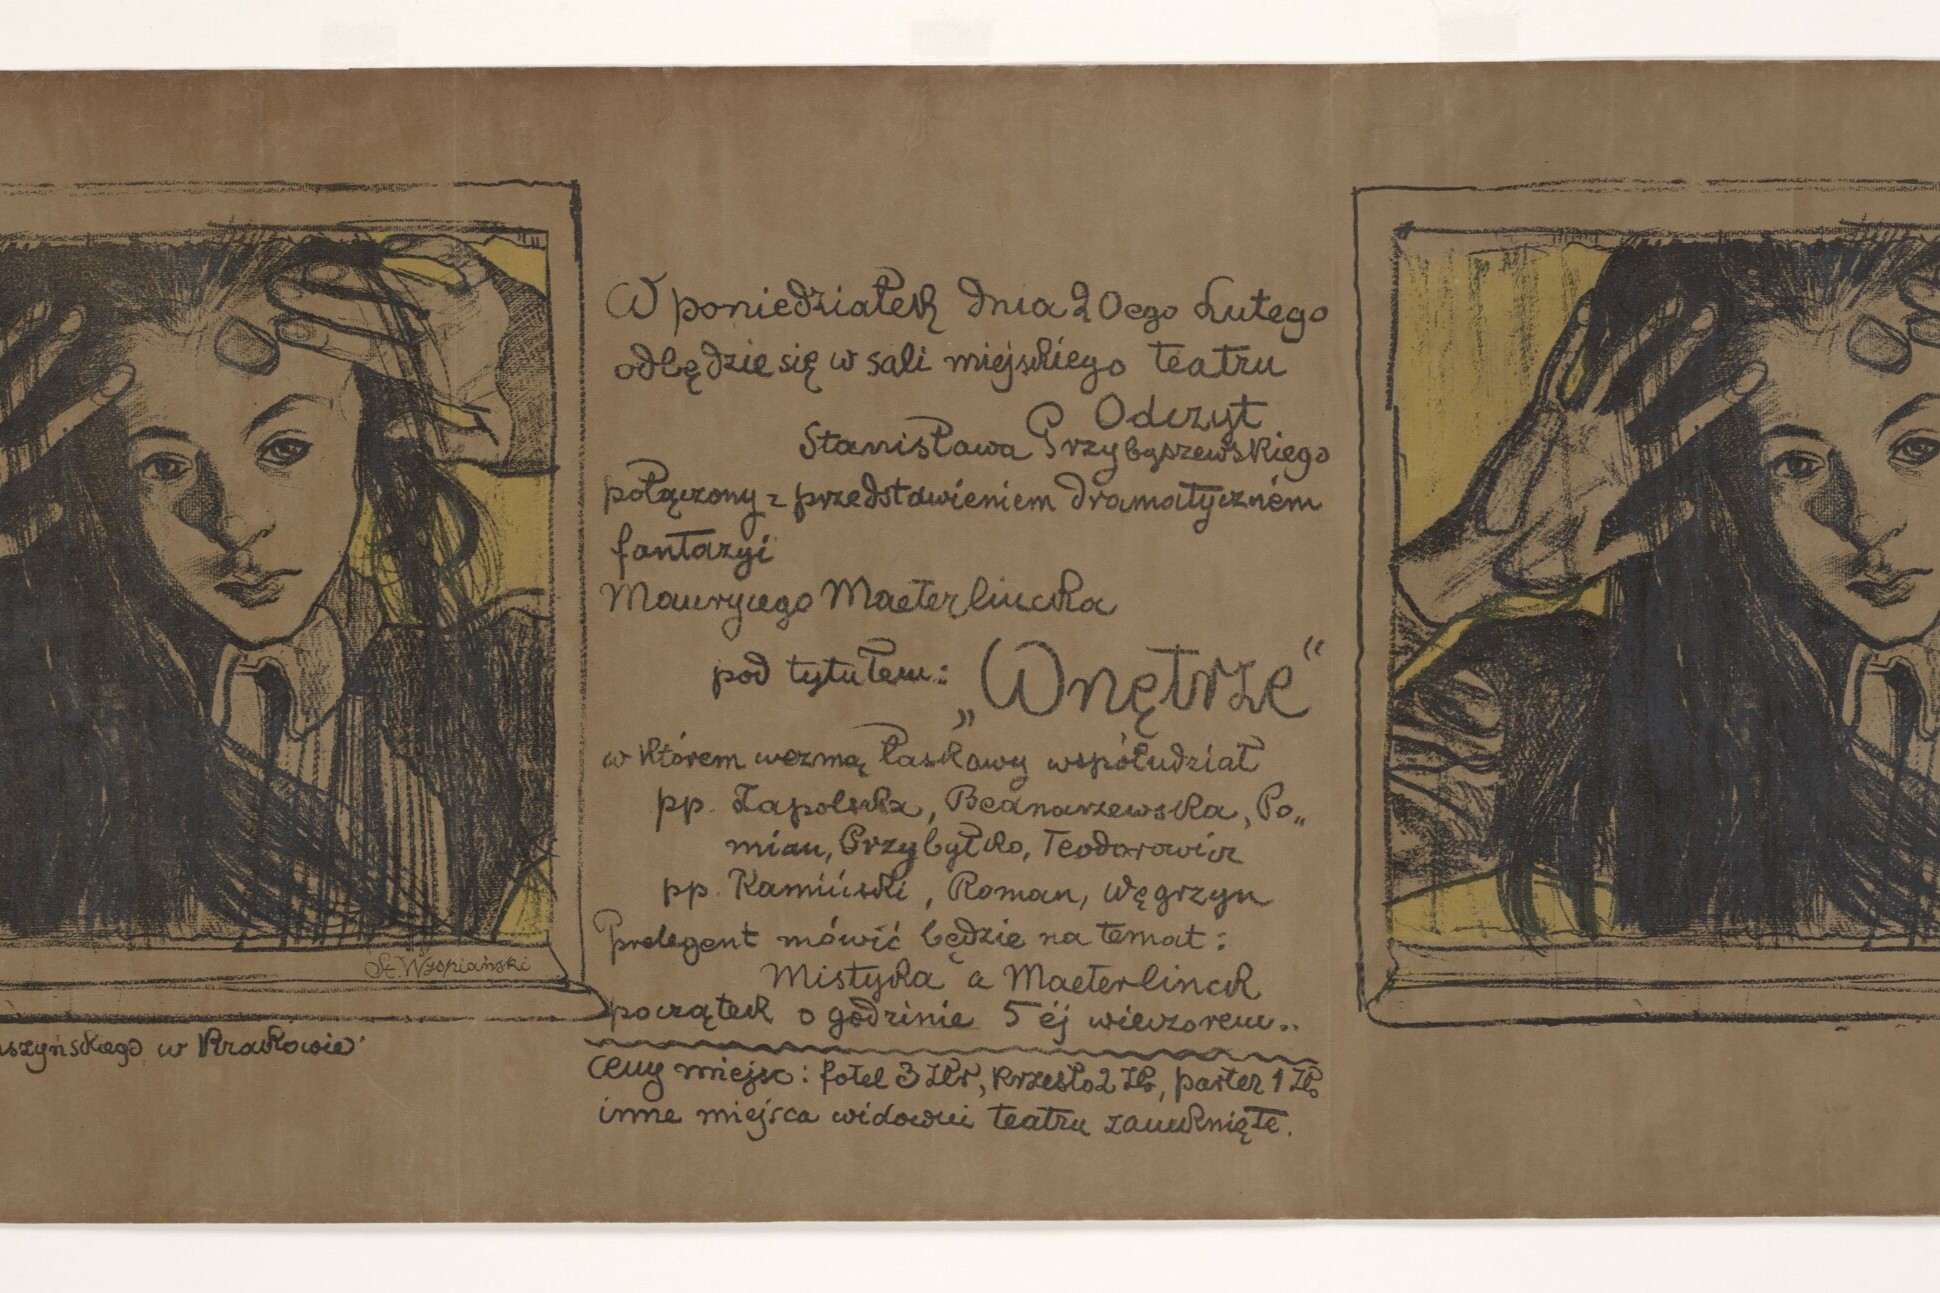 W poniedziałek dnia 20ego Lutego
odbędzie się w sali miejskiego teatru
Odczyt
Stanisława Przybyszewskiego
połączony z przedstawieniem dramatyczném
fantazyi
Maurycego Maeterlincka
pod tytułem:
„Wnętrze“
w którem wezmą łaskawy współudział
pp. Zapolska, Bednarzewska, Po„
mian, Przybyłko, Teodorowicz
pp. Kamiński, Roman, Węgrzyn
Prelegent mówić będzie na temat:
Mistyka a Maeterlinck
początek o godzinie 5 éj wieczorem..
Ceny miejsc: fotel 3 Złr, krzesło 2 Złr, parter 1 Złr
inne miejsca widowni teatru zamknięte.
St. Wyspiański
uszyńskiego w Krakowie